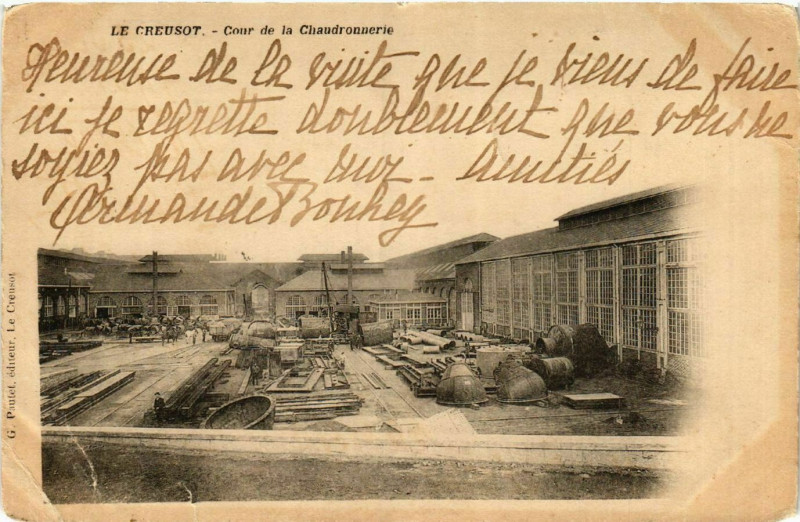 LE CREUSOT. - Cour de la Chaudronnerie
Heureuse de la visite que je viens de faire
ici je regrette doublement que vous ne
soyiez pas avec moi - Amitiés
Armande
G. Pautet, éditeur, Le Creusot